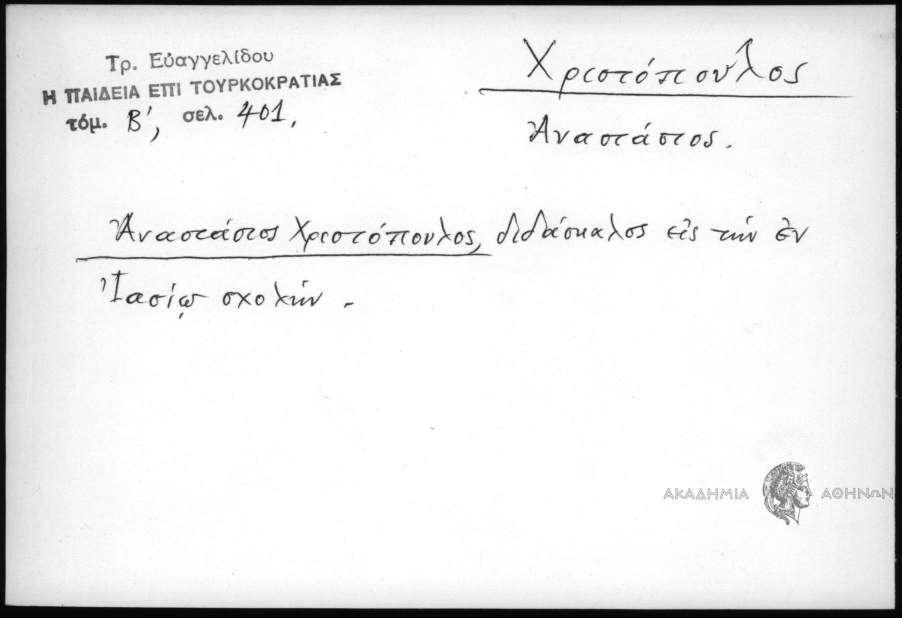 Τρ. Εὐαγγελίδου
Η ΠΑΙΔΕΙΑ ΕΠΙ ΤΟΥΡΚΟΚΡΑΤΙΑΣ
τόμ. Β', σελ. 401.
Χριστόπουλος
Ἀναστάσιος.
Ἀναστάσιος Χριστόπουλος, διδάσκαλος εἰς τὴν ἐν
Ἰασίῳ σχολήν.
ΑΚΑΔΗΜΙΑ ΑΘΗΝΩΝ